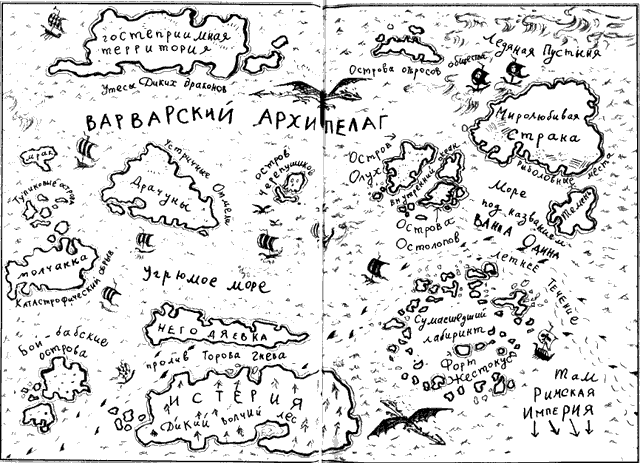 гостеприимная
территория
Утесы Диких драконов
Острова отбросов
общества
Ледяная Пустыня
ВАРВАРСКИЙ АРХИПЕЛАГ
Миролюбивая
Страна
Рыболовные места
мрак
Тупиковые острова
Устричные Отмели
Драчуны
остров
Черепушников
Остров
Олух
внутренний океан
Острова
Остолопов
Море
под названием
ВАННА ОДИНА
молчанка
Катастрофический
Угрюмое море
летнее
течение
Бой-бабские
острова
НЕГОДЯЕВКА
пролив Торова гнева
Сумасшедший
лабиринт
Форт
ИСТЕРИЯ
Дикий волчий лес
Там
Римская
Империя